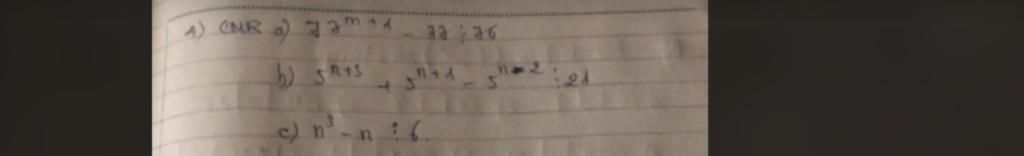 1) CMR a) 77^{m+1} - 77 ⋮ 76
b) 5^{n+3} + 5^{n+1} - 5^{n-2} ⋮ 21
c) n^3 - n ⋮ 6.